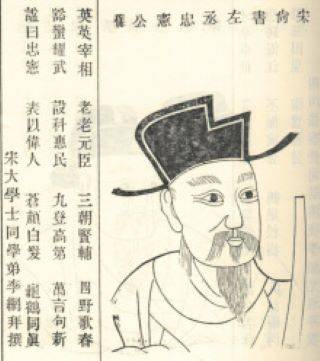 宋尚書左丞忠憲公
英英宰相 老老元臣 三朝賢輔 四野歌春
豁蠻耀武 設科惠民 九登高第 萬言句新
諡曰忠憲 表以偉人 蒼顏白髮 鶴同眞
宋大學士同學弟李綱拜撰